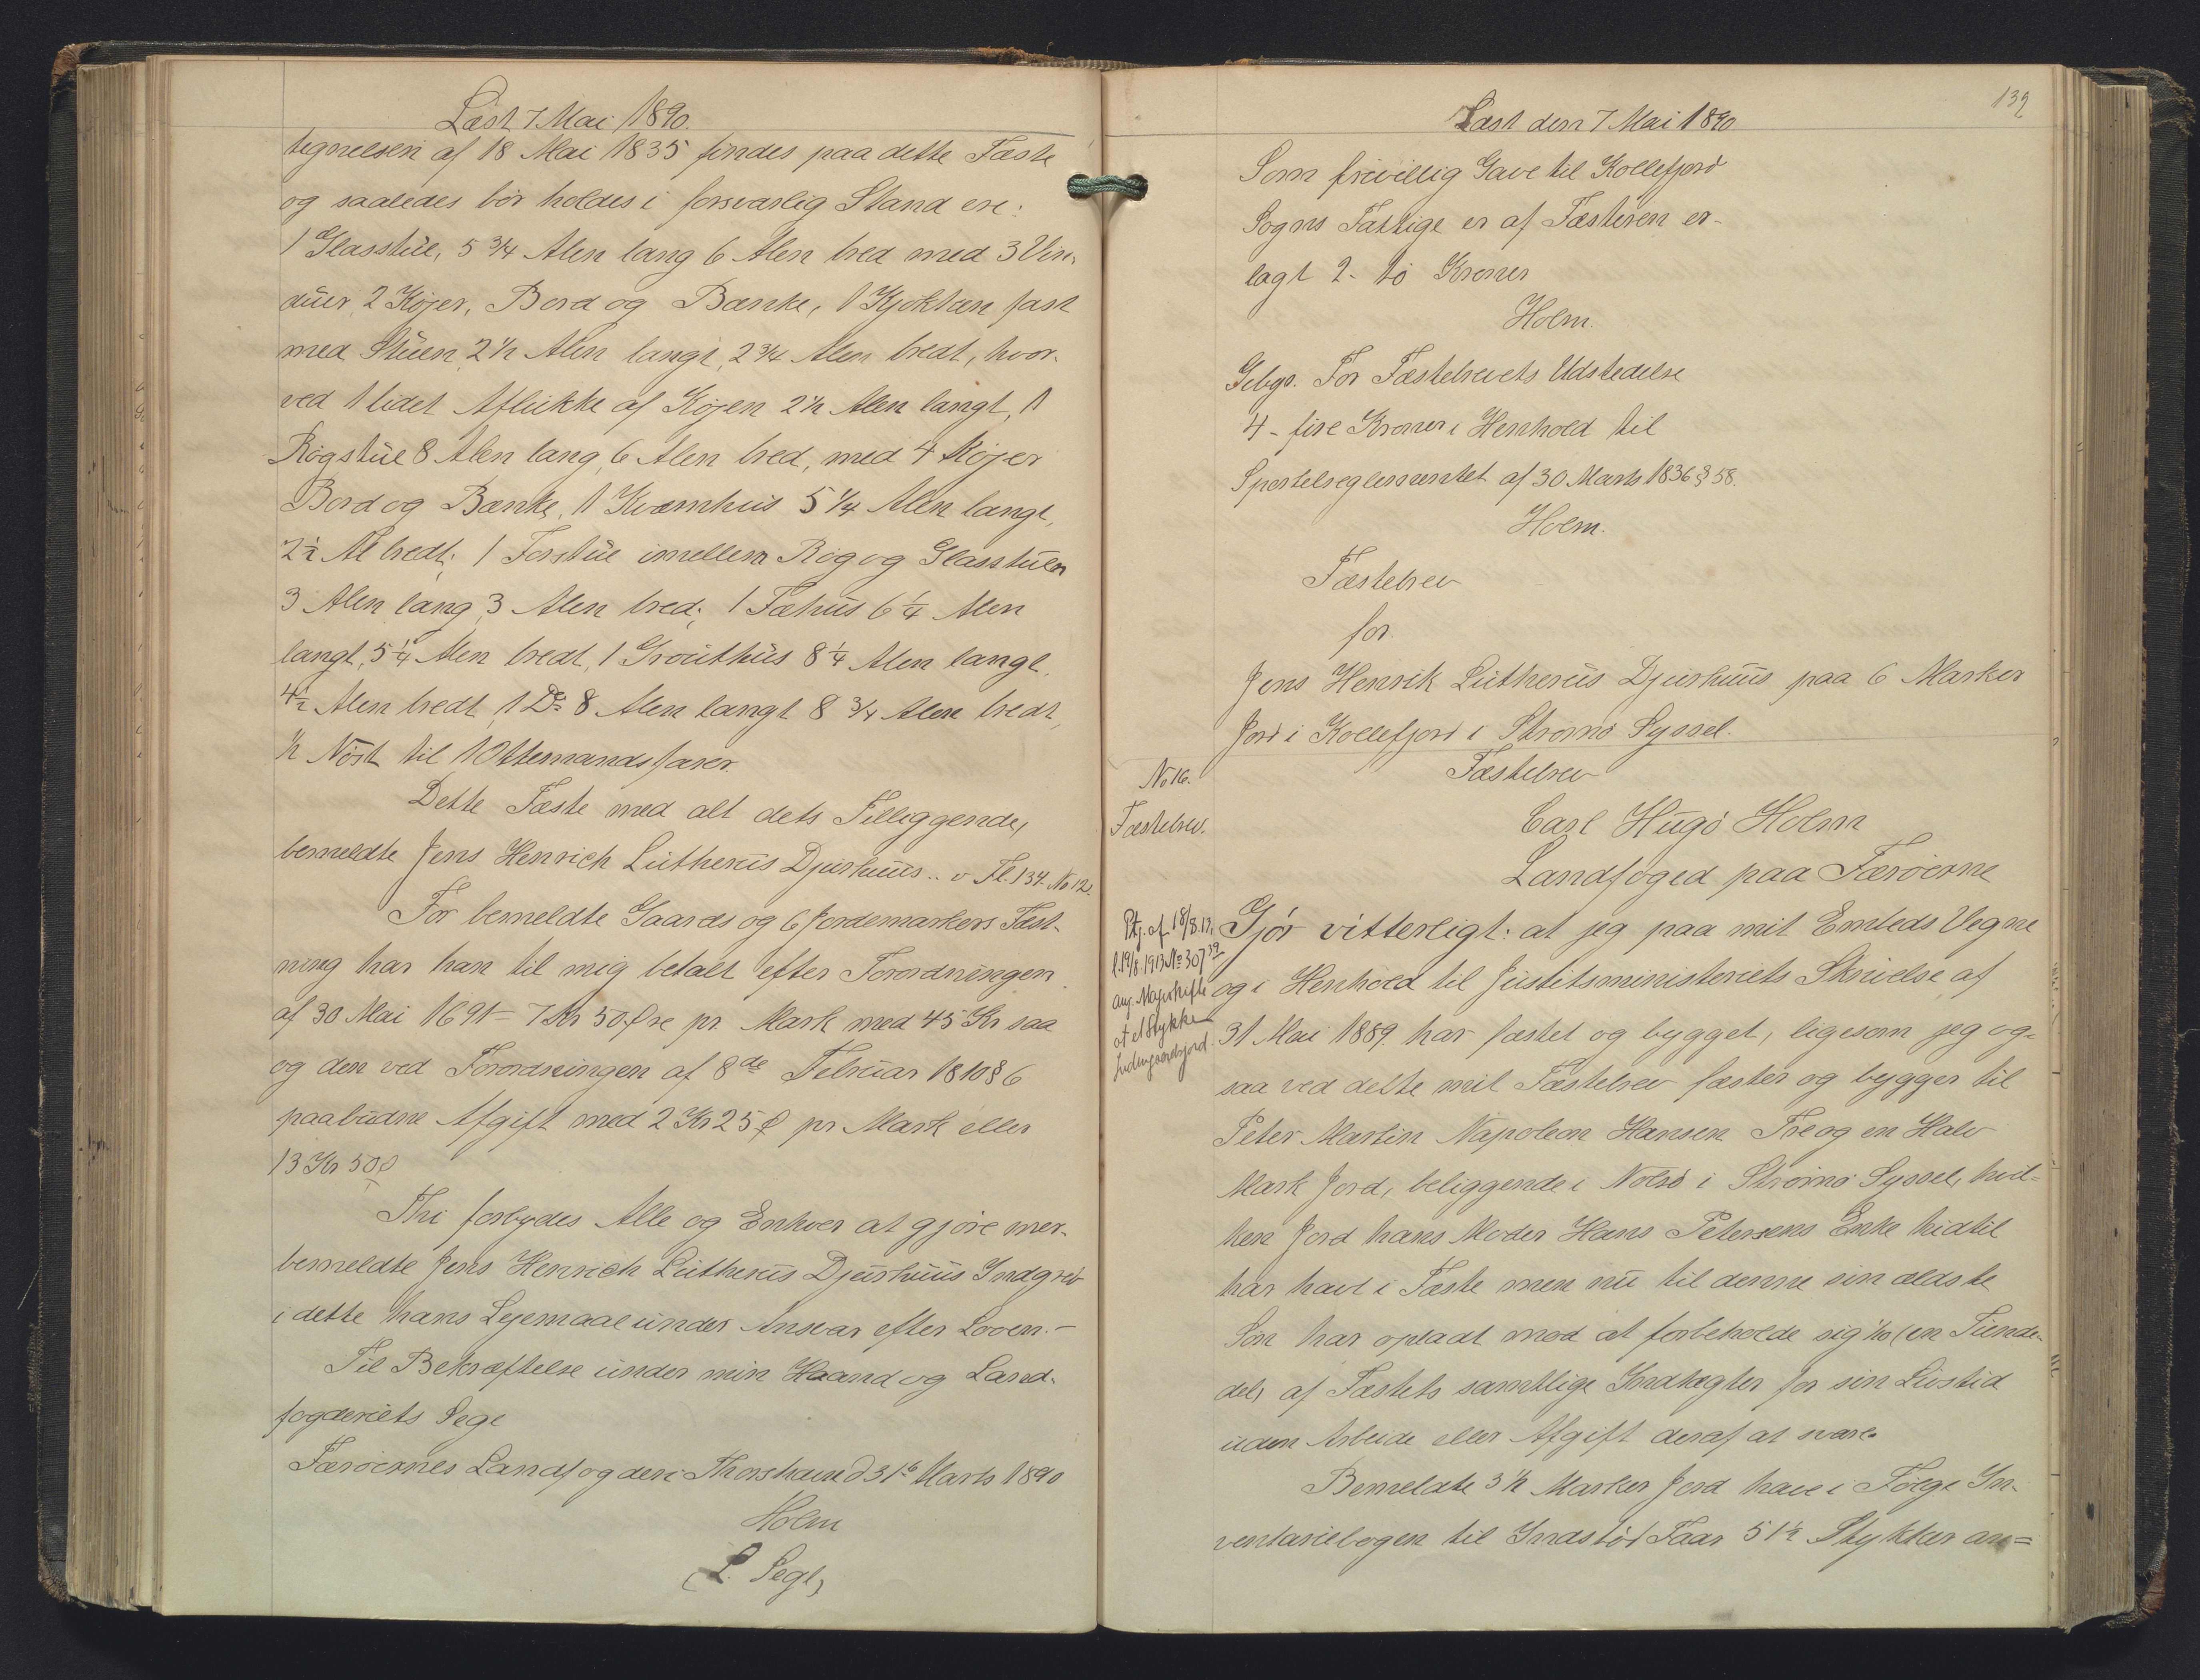 Læst 7 Mai 1890.
tegnelsen af 18 Mai 1835 findes paa dette Fæste
og saaledes bör holdes i forsvarlig Stand ere:
1 Glasstue, 5 3/4 Alen lang 6 Alen bred med 3 Vin-
duer, 2 Köjer, Bord og Bænke, 1 Kjökken fast
med Stuen, 2 1/2 Alen langt, 2 3/4 Alen bredt, hvor-
ved 1 lidet Aflukke af Köjen 2 1/2 Alen langt, 1
Rögstue 8 Alen lang, 6 Alen bred, med 4 Köjer
Bord og Bænke, 1 Kvæmhus 5 1/4 Alen langt,
2 1/2 Al bredt; 1 Forstue imellem Rög og Glasstuen
3 Alen lang 3 Alen bred; 1 Fæhus 6 1/4 Alen
langt, 5 1/4 Alen bredt, 1 Grouthus 8 1/4 Alen langt,
4 1/2 Alen bredt, 1 Do 8 Alen langt 8 3/4 Alen bredt,
1/2 Nöst til 1 Ottemandsfarer.
Dette Fæste med alt dets Tilliggende,
bemeldte Jens Henrich Lutherus Djurhuus .. v Fl. 134 No 12.
For bemeldte Gaards og 6 Jordemarkers Fæst-
ning har han til mig betalt efter Forordningen
af 30 Mai 1691 - 7 Kr 50 Øre pr. Mark med 45 Kr saa
og den ved Forordningen af 8de Februar 1810 § 6
paabudne Afgift med 2 Kr 25 Ø pr Mark eller
13 Kr 50 Ø
Thi forbydes Alle og Enhver at gjöre mer-
bemeldte Jens Henrich Lutherus Djurhuus Indgreb
i dette hans Lejemaal under Ansvar efter Loven.-
Til Bekræftelse under min Haand og Land-
fogderiets Segl
Færöernes Landfogderi Thorshavn d 31te Marts 1890
Holm
(L. Segl)
139
Læst den 7 Mai 1890
Som frivillig Gave til Kollefjord
Sogns Fattige er af Fæsteren er-
lagt 2 - to Kroner
Holm.
Gebyr. For Fæstebrevets Udstedelse
4 - fire Kroner i Henhold til
Sportelreglementet af 30 Marts 1836 § 58.
Holm.
Fæstebrev
for
Jens Henrik Lutherus Djurhuus paa 6 Marker
Jord i Kollefjord i Strömö Syssel.
No 16.
Fæstebrev.
Fæstebrev
Carl Hugo Holm
Landfoged paa Færöerne
Ptg. af 18/8.13.
l. 19/8 1913 No 307 39
ang. Mageskifte
at et Stykke
Indengaardsjord.
Gjör vitterligt: at jeg paa mit Embeds Vegne
og i Henhold til Justitsministeriets Skrivelse af
31 Mai 1889 har fæstet og bygget, ligesom jeg og-
saa ved dette mit Fæstebrev fæster og bygger til
Peter Martin Napoleon Hansen Tre og en Halv
Mark Jord, beliggende i Nolsö i Strömö Syssel, hvil-
ken Jord hans Moder Hans Petersens Enke hidtil
har havt i Fæste men nu til denne sin ældste
Sön har opladt mod at forbeholde sig 1/10 (en Tiende-
del) af Fæstets samtlige Indtægter for sin Livstid
uden Arbeide eller Afgift deraf at svare.
Bemeldte 3 1/2 Marker Jord have i Følge In-
ventariebogen til Indstöd Faar 51 1/2 Stykker an=